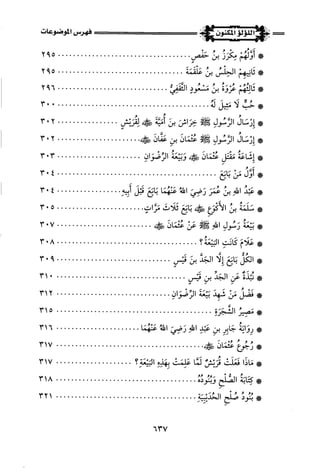 اللؤلؤ المكنون
فهرس الموضوعات
* أَوَّلُهُمْ مِكْرَزُ بنُ حَفْصٍ ........ ٢٩٥
* ثَانِيهِمْ الحِلْسُ بنُ عَلْقَمَةَ ........ ٢٩٥
* ثَالِثُهُمْ عُرْوَةُ بنُ مَسْعُودٍ الثَّقَفِيُّ ........ ٢٩٦
* حُبٌّ لَا مَثِيلَ لَهُ ........ ٣٠٠
* إِرْسَالُ الرَّسُولِ ﷺ خِرَاشَ بنَ أُمَيَّةَ ﷺ لِقُرَيْشٍ ........ ٣٠٢
* إِرْسَالُ الرَّسُولِ ﷺ عُثْمَانَ بنِ عَفَّانَ ﷺ ........ ٣٠٢
* إِشَاعَةُ مَقْتَلِ عُثْمَانَ ﷺ وَبَيْعَةُ الرِّضْوَانِ ........ ٣٠٣
* أَوَّلُ مَنْ بَايَعَ ........ ٣٠٤
* عَبْدُ اللهِ بنُ عُمَرَ رَضِيَ اللهُ عَنْهُمَا بَايَعَ قَبْلَ أَبِيهِ ........ ٣٠٤
* سَلَمَةُ بنُ الأَكْوَعِ ﷺ بَايَعَ ثَلَاثَ مَرَّاتٍ ........ ٣٠٥
* بَيْعَةُ رَسُولِ اللهِ ﷺ عَنْ عُثْمَانَ ﷺ ........ ٣٠٧
* عَلَامَ كَانَتِ البَيْعَةُ؟ ........ ٣٠٨
* الكُلُّ بَايَعَ إِلَّا الجَدَّ بنَ قَيْسٍ ........ ٣٠٩
* نُبْذَةٌ عَنِ الجَدِّ بنِ قَيْسٍ ........ ٣١٠
* فَضْلُ مَنْ شَهِدَ بَيْعَةَ الرِّضْوَانِ ........ ٣١٢
* مَصِيرُ الشَّجَرَةِ ........ ٣١٥
* رِوَايَةُ جَابِرِ بنِ عَبْدِ اللهِ رَضِيَ اللهُ عَنْهُمَا ........ ٣١٦
* رُجُوعُ عُثْمَانَ ﷺ ........ ٣١٧
* مَاذَا فَعَلَتْ قُرَيْشٌ لَمَّا عَلِمَتْ بِهَذِهِ البَيْعَةِ؟ ........ ٣١٧
* كِتَابَةُ الصُّلْحِ وَبُنُودُهُ ........ ٣١٨
* بُنُودُ صُلْحِ الحُدَيْبِيَةِ ........ ٣٢١
٦٣٧